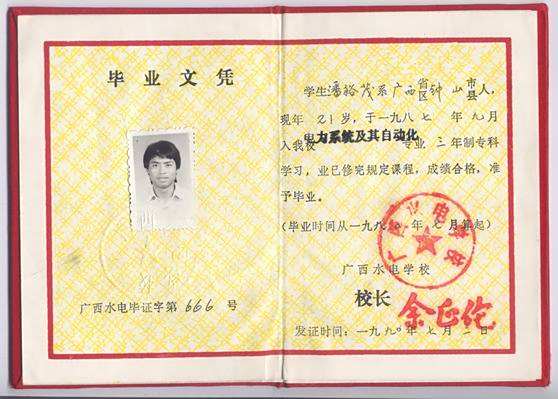 毕业文凭
广西水电毕证字第 666 号
学生潘裕茂系广西省区钟山市县人，
现年 21 岁，于一九八七年九月
入我校电力系统及其自动化专业三年制专科
学习，业已修完规定课程，成绩合格，准
予毕业。
(毕业时间从一九九〇年七月算起)
广西水电学校
广西水电学校
校长
发证时间：一九九〇年七月 日